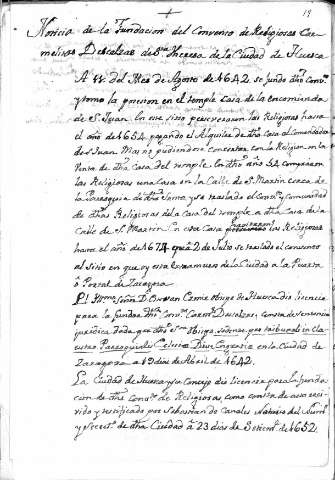 19
Noticia de la Fundacion del Convento de Religiosas Car-
melitas Descalzas de Sta Theresa de la Ciudad de Huesca
A 11 del Mes de Agosto de 1642 se fundo dho Convto
y tomo la posesion en el temple casa de la encomienda
de S. Juan. En este sitio perseveraron las Religiosas hasta
el año de 1654 pagando el Alquiler de dha Casa al Comendador
de S. Juan. Mas no pudiendose concertar con la Religion en la
Venta de dha Casa del temple. En dho año 54 compraron
las Religiosas una Casa en la Calle de S. Martin cerca de
la Parroquia de dho Santo, y se traslado el Convto y comunidad
de dhas Religiosas de la Casa del temple a dha Casa de la
Calle de S. Martin. En esta Casa perseveraron las Religiosas
hasta el año de 1674 que a 2 de Julio se traslado el convento
al sitio en que oy esta extramuros de la Ciudad a la Puerta
o Portal de Zaragoza.
El Illmo Señor D. Estevan Esmir obispo de Huesca dio licencia
para la fundon dho Convto Carmtas Descalzas, consta de sentencia
juridica dada por dho Sr obispo sedente pro tribunali in cla-
ustro Parrochialis Eclesiae Divae Engratiae en la Ciudad de
Zaragoza a 19 dias de Abril de 1642.
La Ciudad de Huesca y su Concejo dio licencia para la funda-
cion de dho Convto de Religiosas, como consta de acto reci-
vido y testificado por Sebastian de Canales Notario del Numro
y Secreto de dha Ciudad à 23 dias de Setiembre de 1652.